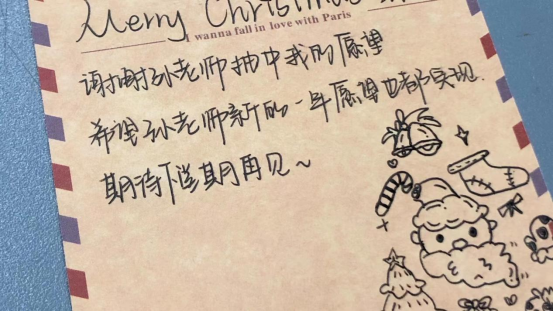 Merry Christmas
I wanna fall in love with Paris
谢谢孙老师抽中我的愿望
希望孙老师新的一年愿望也都实现.
期待下学期再见~